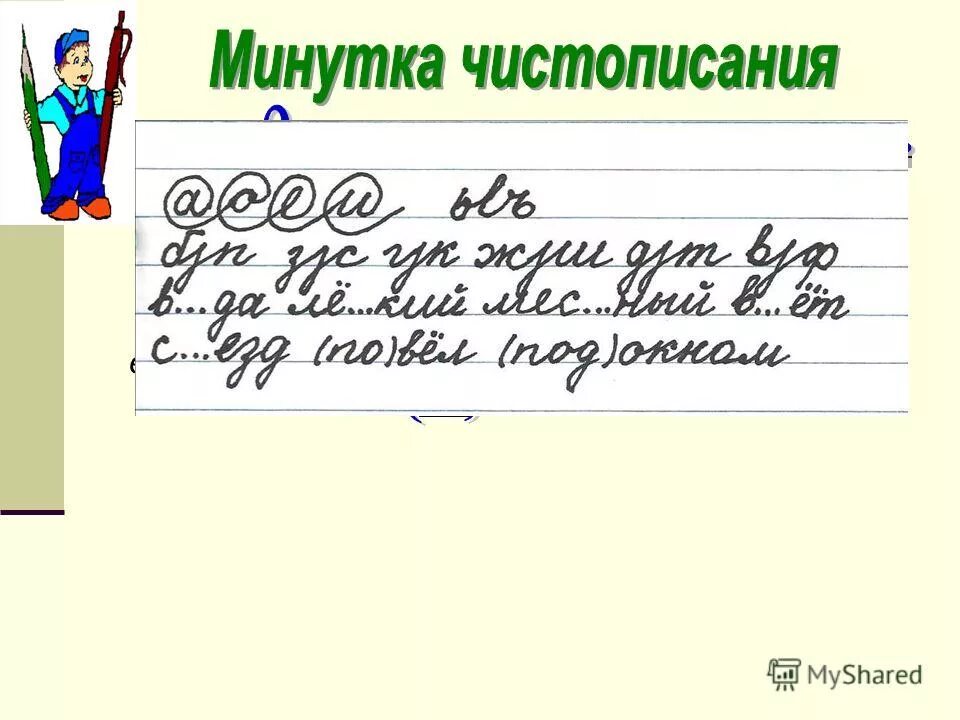 Минутка чистописания
а о е и ьвъ
б/п з/с г/к ж/ш д/т в/ф
в...да лё...кий мес...ный в...ёт
с...езд (по)вёл (под)окном
MyShared